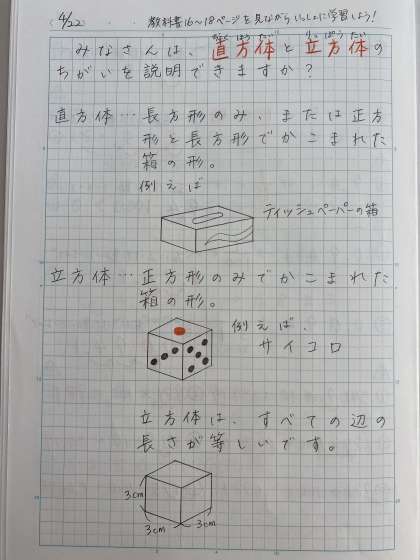 (4/22) 教科書16〜18ページを見ながらいっしょに学習しよう!
みなさんは、直方体と立方体の
ちがいを説明できますか?
直方体…長方形のみ、または正方
形と長方形でかこまれた
箱の形。
例えば
ティッシュペーパーの箱
立方体…正方形のみでかこまれた
箱の形。
例えば、
サイコロ
立方体は、すべての辺の
長さが等しいです。
3cm
3cm
3cm